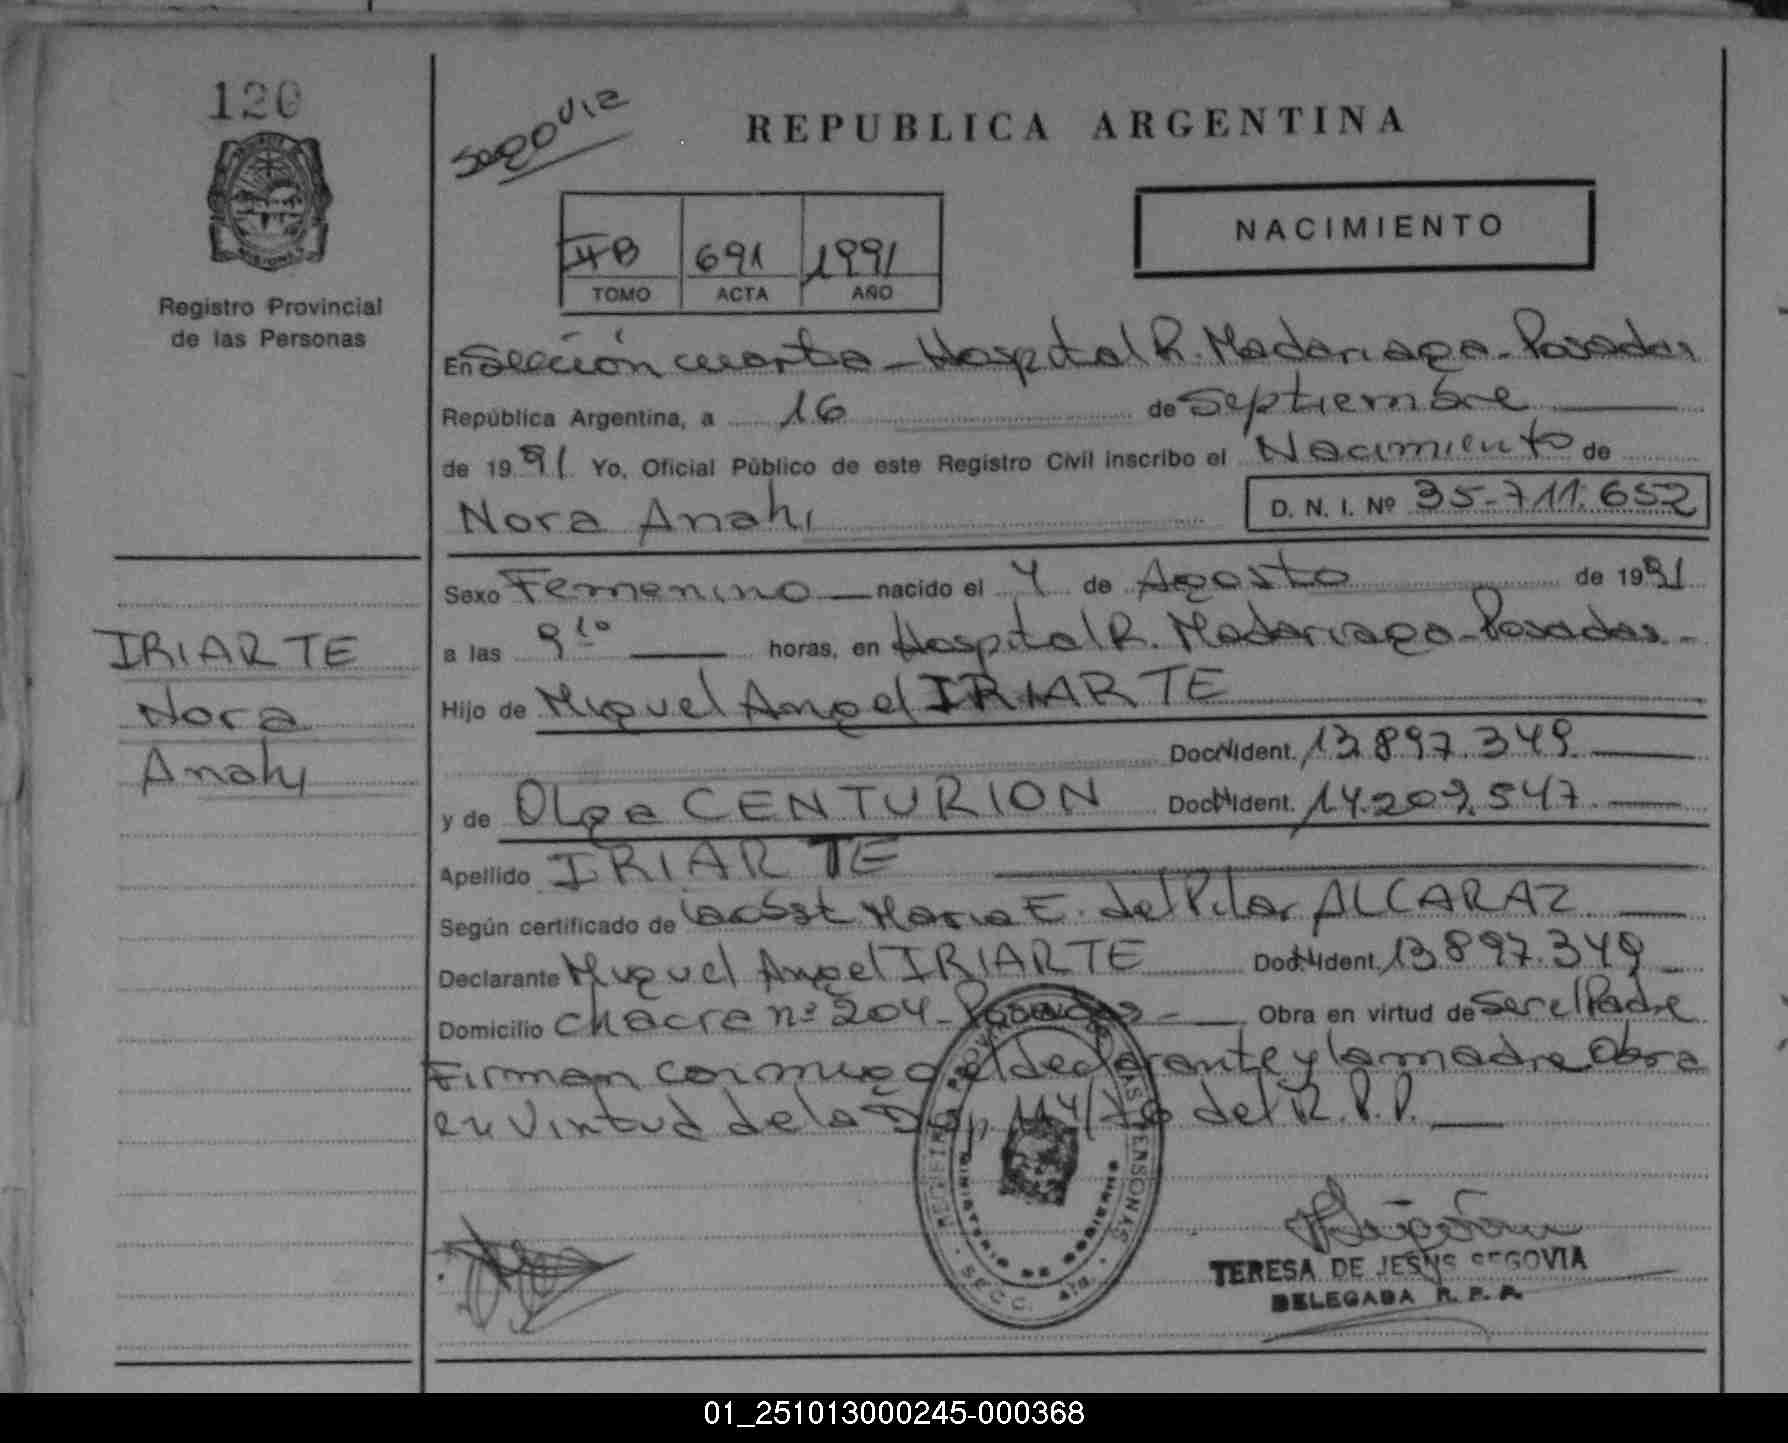 120
Segovia
REPUBLICA ARGENTINA
NACIMIENTO
Registro Provincial
de las Personas
II B 691 1991
TOMO ACTA AÑO
En Sección cuarta - Hospital R. Madariaga - Posadas
República Argentina, a 16 de Septiembre
de 1991 Yo, Oficial Público de este Registro Civil inscribo el Nacimiento de
Nora Anahi D. N. I. Nº 35.711.652
Sexo Femenino nacido el 4 de Agosto de 1991
a las 9 10 horas, en Hospital R. Madariaga - Posadas -
Hijo de Miguel Angel IRIARTE
Doc. Ident. 13.897.349
y de Olga CENTURION Doc. Ident. 14.209.547
Apellido IRIARTE
Según certificado de la Obst Maria E. del Pilar ALCARAZ
Declarante Miguel Angel IRIARTE Doc. Ident. 13.897.349
Domicilio Chacra nº 204 - Posadas - Obra en virtud de Ser el Padre
Firman conmigo el declarante y la madre Obra
en Virtud de la Disp. 114/ del R.P.P.
IRIARTE
Nora
Anahi
REGISTRO PROVINCIAL DE LAS PERSONAS
MINISTERIO DE GOBIERNO
SECC. 4ta.
TERESA DE JESUS SEGOVIA
DELEGADA R. P. P.
01_251013000245-000368